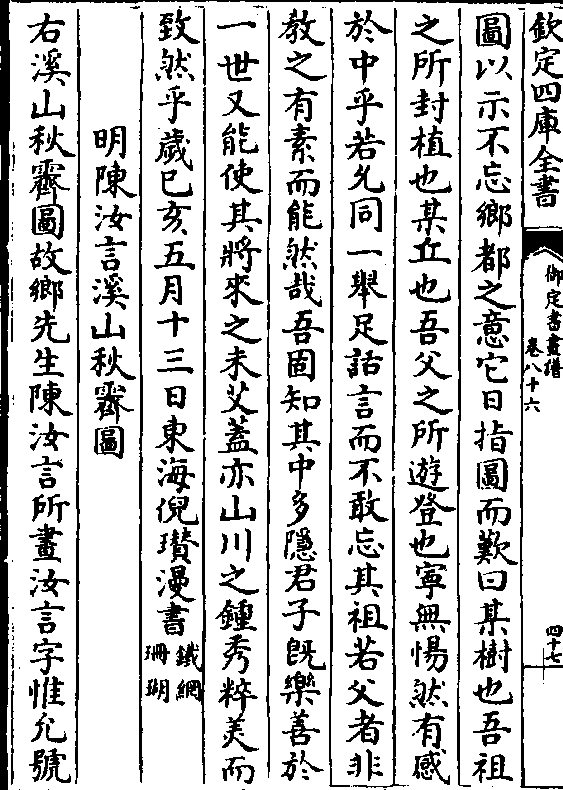 欽定四庫全書
御定書畫譜
卷八十六
四十七
圖以示不忘鄉都之意它日指圖而歎曰某樹也吾祖
之所封植也某丘也吾父之所遊登也寧無惕然有感
於中乎若允同一舉足話言而不敢忘其祖若父者非
教之有素而能然哉吾固知其中多隱君子既樂善於
一世又能使其將來之未艾蓋亦山川之鍾秀粹美而
致然乎歲巳亥五月十三日東海倪瓚漫書鐵網
珊瑚
明陳汝言溪山秋霽圖
右溪山秋霽圖故鄉先生陳汝言所畫汝言字惟允號